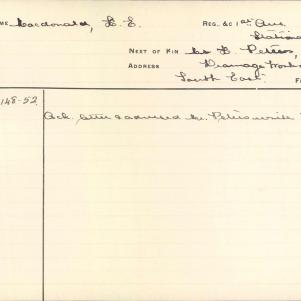 ME Macdonald, L. E. REG. &C 1st Aus.
Stationa
NEXT OF KIN Mr L. Peters,
ADDRESS Drainage Works
South East.
F
148-52
Ack. letter & advised Mr. Peters write